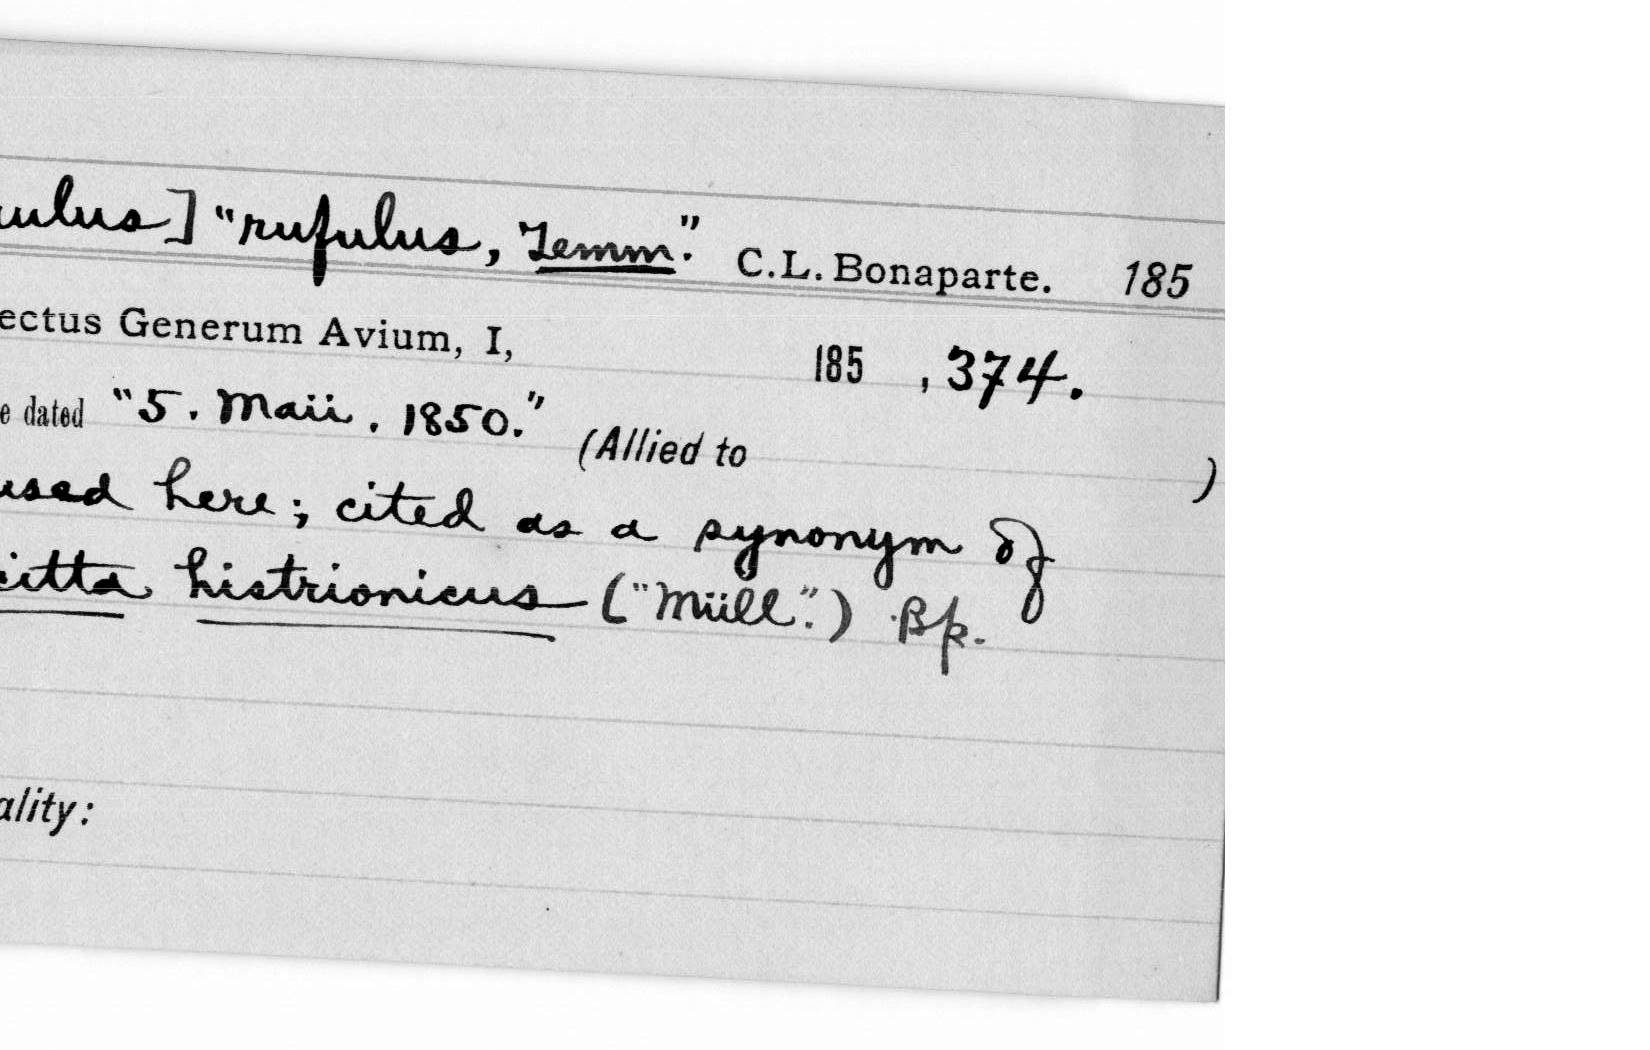 ulus] "rufulus, Temm." C.L. Bonaparte. 185
ectus Generum Avium, I, 185 , 374.
e dated "5. Maii. 1850." (Allied to )
used here; cited as a synonym of
citta histrionicus ("Müll.") Bp.
ality: